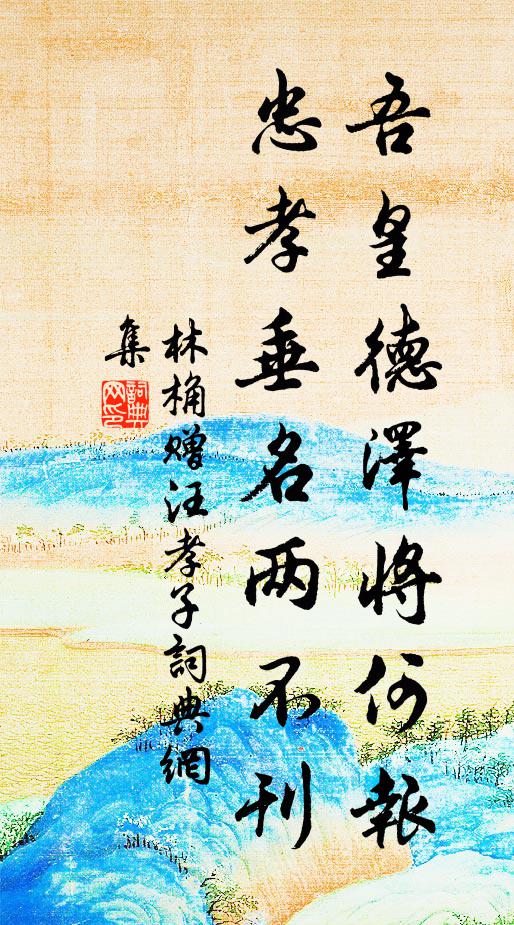 吾皇德澤將何報
忠孝垂名两不刊
林桷贈汪孝子詞典網
集
詞典
网印